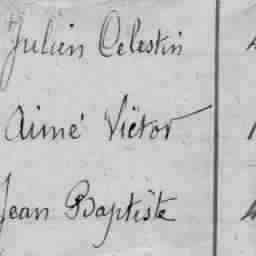 Julien Celestin
Aimé Victor
Jean Baptiste